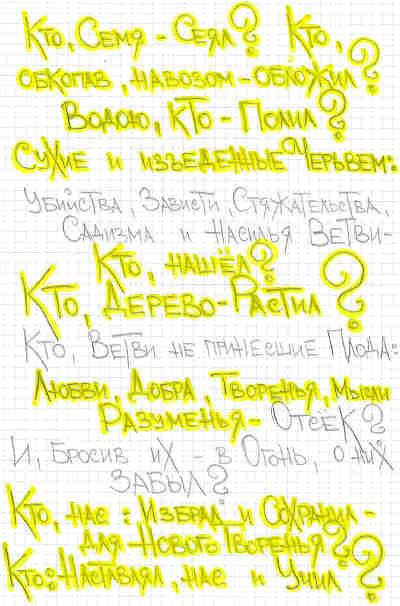 Кто, Семя - Сеял? Кто,
обкопав, навозом - обложил?
Водою, Кто - Полил?
Сухие и изъеденные Черьвем:
Убийства, Зависти, Стяжательства,
Садизма и Насилья Ветви -
Кто, нашёл?
Кто, Дерево - Растил?
Кто, Ветви не принёсшие Плода:
Любви, Добра, Творенья, Мысли
Разуменья - Отсёк?
И, Бросив их - в Огонь, о них
Забыл?
Кто, нас: Избрал и Сохранил -
для - Нового Творенья?
Кто: Наставлял, нас и Учил?